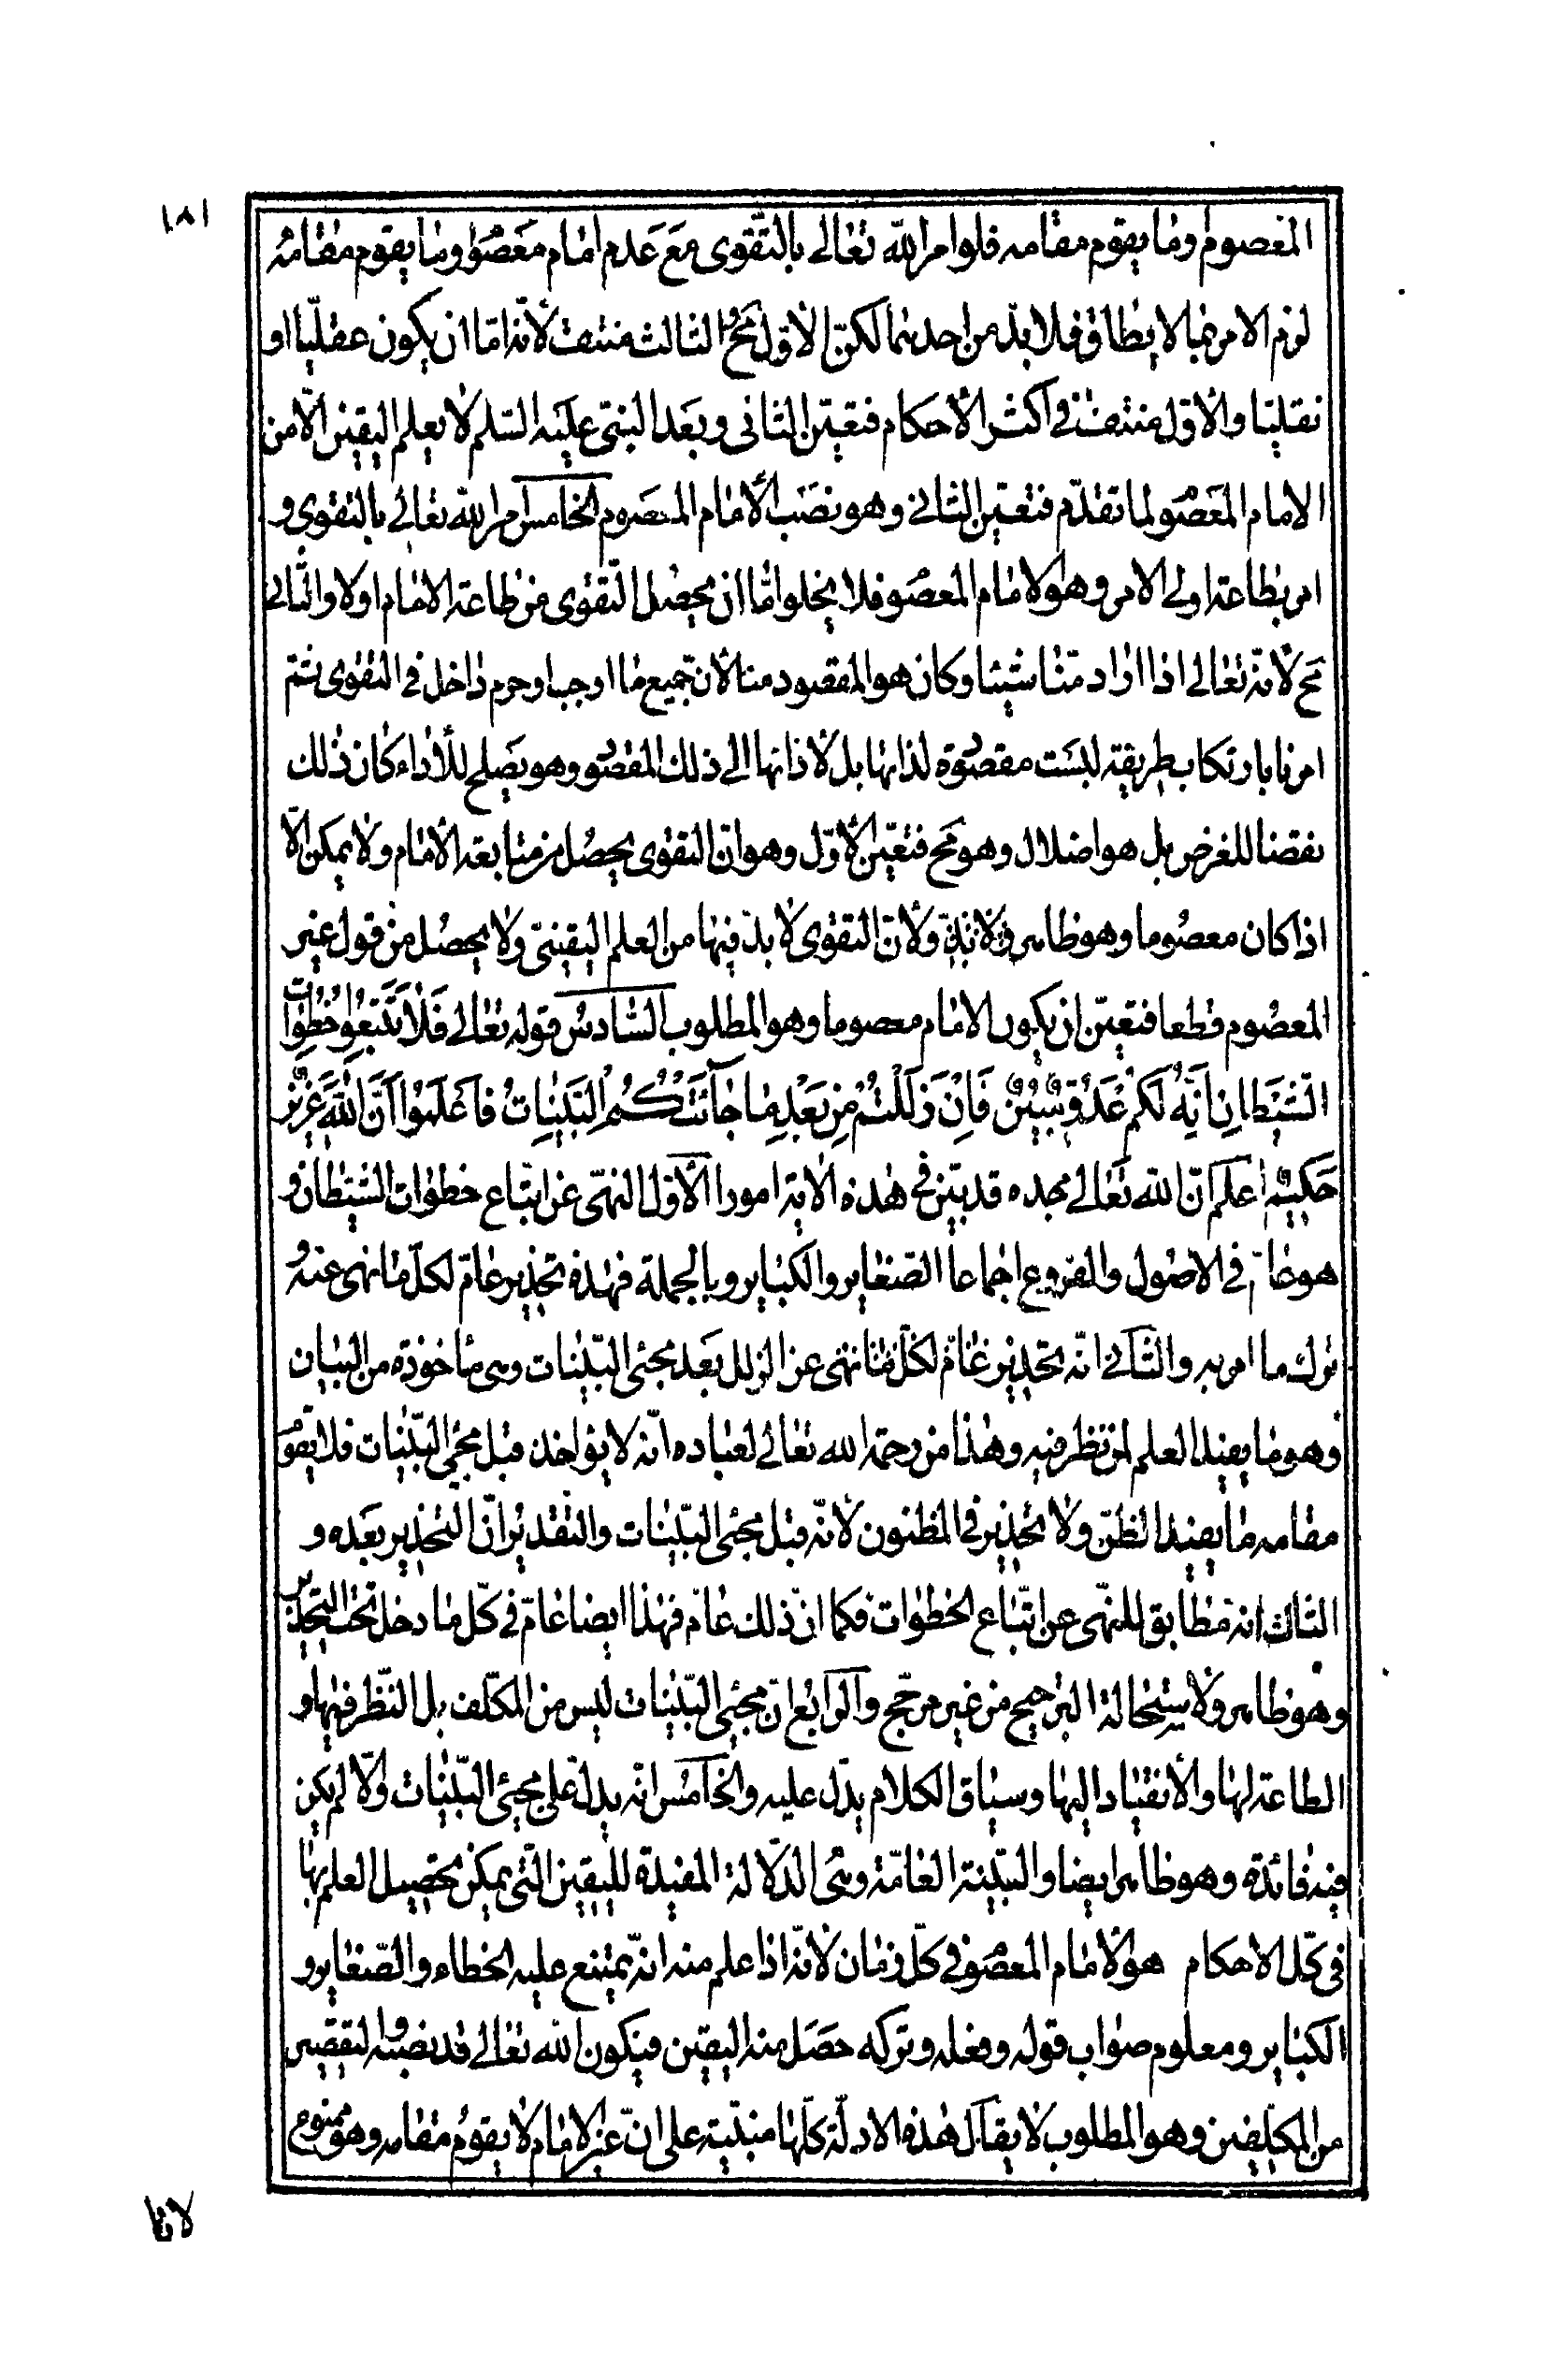 ١٨١
المعصوم وما يقوم مقامه فلو امر الله تعالى بالتقوى مع عدم امام معصوم وما يقوم مقامه
لزم الامر بما لا يطاق فلا بد من احدهما لكن الاول مح الثالث منتف لأنه اما ان يكون عقليا او
نقليا والاول منتف في اكثر الأحكام فتعين الثاني وبعد النبي عليه السلم لا يعلم اليقين الا من
الامام المعصوم لما تقدم فتعين الثاني وهو نصب الأمام المعصوم الخامس امر الله تعالى بالتقوى و
امر بطاعة اولى الامر وهو الامام المعصوم فلا يخلو اما ان يحصل التقوى من طاعة الامام اولا والثاني
مح لأنه تعالى اذا اراد منا شيئا وكان هو المقصود منا لأن جميع ما اوجب او حرم داخل في التقوى ثم
امرنا بارتكاب طريقة ليست مقصودة لذاتها بل لأدائها الى ذلك المقصود وهو يصلح للأداء كان ذلك
نقضا للغرض بل هو اضلال وهو مح فتعين الأول وهو ان التقوى يحصل من متابعة الأمام ولا يمكن الا
اذا كان معصوما وهو ظاهر ولأن التقوى لا بد فيها من العلم اليقيني ولا يحصل من قول غير
المعصوم قطعا فتعين ان يكون الامام معصوما وهو المطلوب السادس قوله تعالى فَلَا تَتَّبِعُوا خُطُوَاتِ
الشَّيْطَانِ اِنَّهُ لَكُمْ عَدُوٌّ مُبِينٌ فَاِنْ زَلَلْتُمْ مِنْ بَعْدِ مَا جَاءَتْكُمُ الْبَيِّنَاتُ فَاعْلَمُوا اَنَّ اللهَ عَزِيزٌ
حَكِيمٌ اعلم ان الله تعالى مجده قد بين في هذه الاية امورا الأول النهى عن اتباع خطوات الشيطان و
هو عام في الاصول والفروع اجماعا الصغاير والكباير وبالجملة فهذه تحذير عام لكل ما نهى عنه و
ترك ما امر به والثاني انه تحذير عام لكل ما نهى عن الزلل بعد مجئ البينات وهى ماخوذة من البيان
وهو ما يفيد العلم لمن نظر فيه وهذا من رحمة الله تعالى لعباده انه لا يؤاخذ قبل مجئ البينات فلا يقوم
مقامه ما يفيد الظن ولا تحذير في المظنون لأنه قبل مجئ البينات والتقدير ان التحذير بعده و
الثالث انه مطابق للنهى عن اتباع الخطوات فكما ان ذلك عام فهذا ايضا عام في كل ما دخل تحت التحذير
وهو ظاهر ولاستحالة الترجيح من غير مرجح والرابع ان مجئ البينات ليس من المكلف بل النظر فيها و
الطاعة لها والأنقياد اليها وسياق الكلام يدل عليه والخامس انه يدل على مجئ البينات والا لم يكن
فيه فائدة وهو ظاهر ايضا والبينة العامة وهى الدلالة المفيدة لليقين التى يمكن تحصيل العلم بها
في كل الاحكام هو الأمام المعصوم في كل زمان لأنه اذا علم منه انه يمتنع عليه الخطاء والصغاير و
الكباير ومعلوم صواب قوله وفعله وتركه حصل منه اليقين فيكون الله تعالى قد نصبه والتقصير
من المكلفين وهو المطلوب لا يقال هذه الادلة كلها مبنية على ان غير الامام لا يقوم مقامه وهو ممنوع
لانا